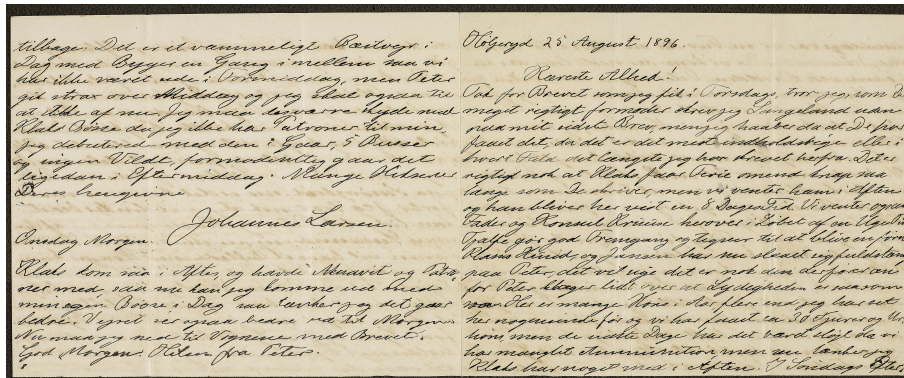 tilbage. Det er et væmmeligt Bæitvejr i
Dag med Byger en Gang i mellem saa vi
har ikke været ude i Formiddag, men Peter
gik strax over Middag og jeg skal ogsaa til
at ikke af nu. Jeg maa desværre skyde med
Klaks Bøsse da jeg ikke har Patroner til min
jeg debuterede med den i Gaar, 5 Busser
og ingen Vildt, formodentlig gaar det
ligedan i Eftermiddag. Mange Hilsener
Deres hengivne
Johannes Larsen.
Onsdag Morgen.
Klaks kom saa i Aftes og havde Akvavit og
med saa nu kan jeg komme ud med
min egen Bøsse i Dag saa tænker jeg det gaar
bedre. Vejret er ogsaa bedre ud til Morgen.
Nu maa jeg ned til Vognene med Brevet.
God Morgen. Hilsen fra Peter.
Høljeryd 25 August 1896.
Kæreste Alhed!
Tak for Brevet som jeg fik i Torsdags, tror jeg, som De
meget rigtigt formoder skrev jeg Langeland uden
paa mit sidste Brev, men jeg haaber da at De har
faaet det, da det er det mest indholdsrige eller i
hvert Fald det længste jeg har skrevet herfra. Det er
rigtigt nok at Klaks faar Ferie omend knap saa
længe som De skriver, men vi venter ham i Aften
og han bliver her vist en 8 Dages Tid. Vi venter ogsaa
Fader og Konsul Kruuse herover i Løbet af en Uges Tid
gør god Fremgang og tegner til at blive en
Klaks Hund, og Jansen har nu sluttet sig fuldstændig
paa Peter, det vil sige det er nok den der foreren
for Peter klager lidt over at Lydigheden er saa som
saa. Her er mange Høns i Aar flere end jeg har set
her nogensinde før og vi har faaet ca 30 Tjurer og Ur
høns, men de sidste Dage har det været sløjt da vi
har manglet Ammunition men nu tænker jeg
Klaks har noget med i Aften. I Søndags Efter